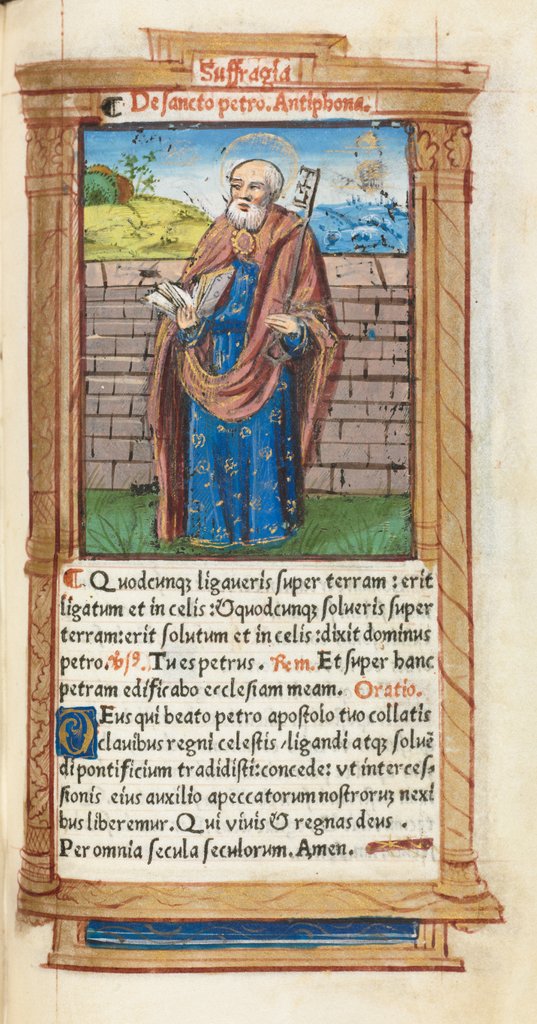 Suffragia
De sancto petro. Antiphona.
Quodcunqꝫ ligaueris super terram : erit
ligatum et in celis : & quodcunqꝫ solueris super
terram: erit solutum et in celis : dixit dominus
petro. Tu es petrus . Et super hanc
petram edificabo ecclesiam meam. Oratio.
DEus qui beato petro apostolo tuo collatis
clauibus regni celestis / ligandi atqꝫ soluē
di pontificium tradidisti: concede: vt interces-
sionis eius auxilio a peccatorum nostroruꝫ nexi
bus liberemur. Qui viuis & regnas deus .
Per omnia secula seculorum. Amen.